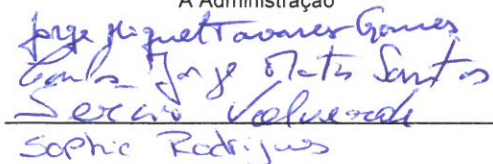 A Administração
Jorge Miguel Tavares Gomes
Carlos Jorge Matos Santos
Sergio Valverde
Sophie Rodrigues